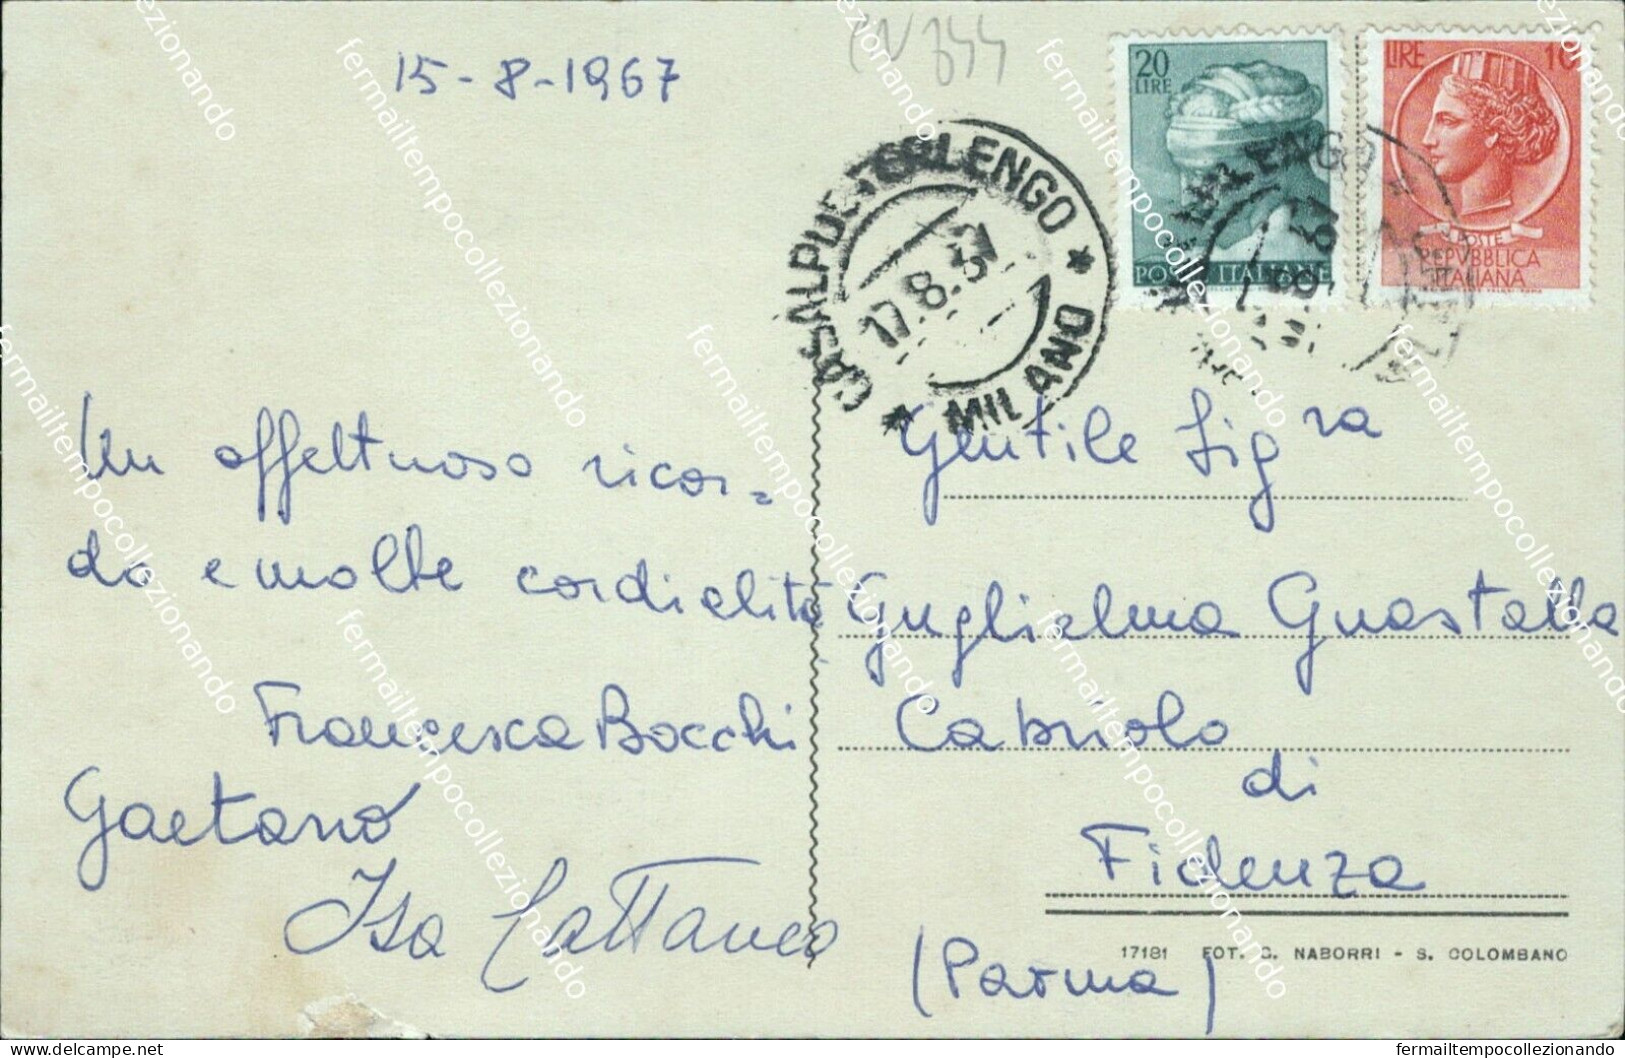 15-8-1967
20
LIRE
POSTE ITALIANE
LIRE 10
POSTE
REPVBBLICA
ITALIANA
CASALPUSTERLENGO * MILANO *
17.8.
Un affettuoso ricor=
do e molte cordialità
Francesca Bocchi
Gaetano
Isa Cattaneo
Gentile Sig ra
Guglielma Guastalla
Cabriolo
di
Fidenza
(Parma)
17181 FOT. G. NABORRI - S. COLOMBANO
fermailtempocollezionando
fermailtempocollezionando